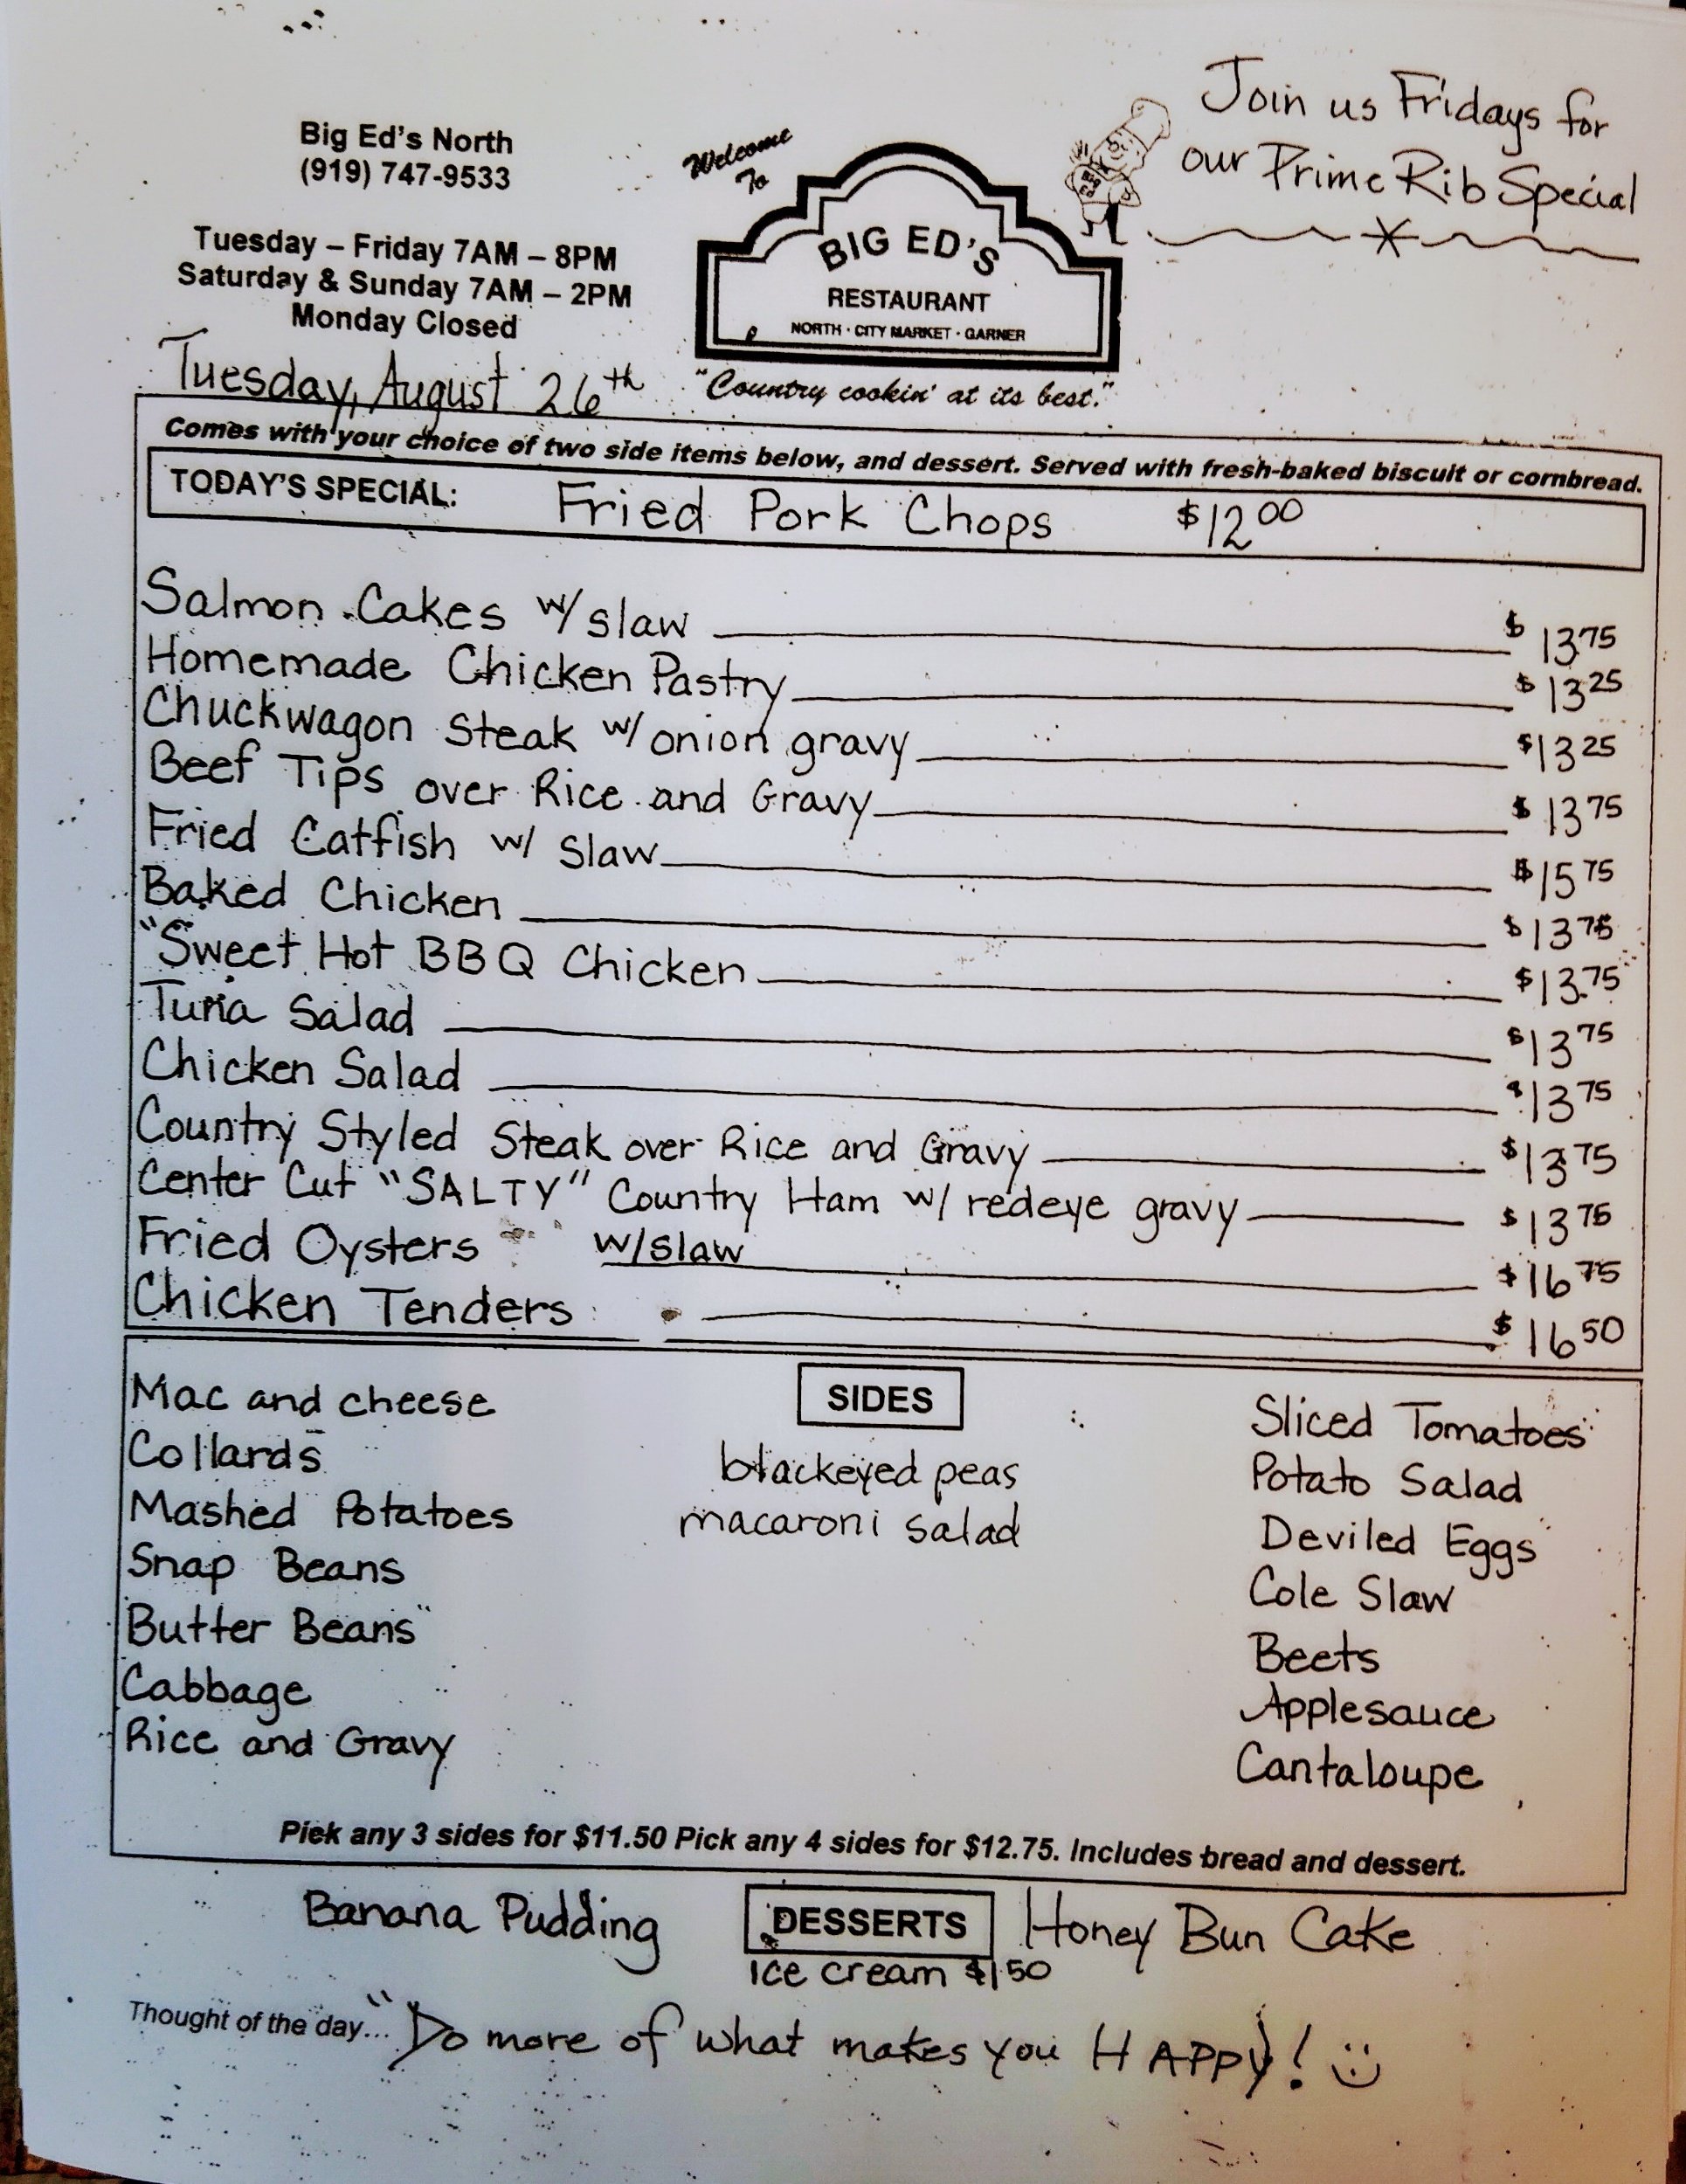 Join us Fridays for
our Prime Rib Special
Big Ed's North
(919) 747-9533
Tuesday – Friday 7AM – 8PM
Saturday & Sunday 7AM – 2PM
Monday Closed
Welcome
To
Big
Ed
BIG ED'S
RESTAURANT
NORTH · CITY MARKET · GARNER
"Country cookin' at its best."
Tuesday, August 26th
Comes with your choice of two side items below, and dessert. Served with fresh-baked biscuit or cornbread.
TODAY'S SPECIAL: Fried Pork Chops $12 00
Salmon Cakes w/ slaw $ 13 75
Homemade Chicken Pastry $ 13 25
Chuckwagon Steak w/ onion gravy $13 25
Beef Tips over Rice and Gravy $ 13 75
Fried Catfish w/ Slaw $15 75
Baked Chicken $13 75
"Sweet Hot BBQ Chicken $13.75
Tuna Salad $13 75
Chicken Salad $13 75
Country Styled Steak over Rice and Gravy $13 75
Center Cut "SALTY" Country Ham w/ redeye gravy $13 75
Fried Oysters w/slaw $16 75
Chicken Tenders $16 50
SIDES
Mac and cheese
Collards
Mashed Potatoes
Snap Beans
Butter Beans
Cabbage
Rice and Gravy
blackeyed peas
macaroni salad
Sliced Tomatoes
Potato Salad
Deviled Eggs
Cole Slaw
Beets
Applesauce
Cantaloupe
Pick any 3 sides for $11.50 Pick any 4 sides for $12.75. Includes bread and dessert.
Banana Pudding DESSERTS Honey Bun Cake
Ice cream $1 50
Thought of the day... "Do more of what makes you HAPPY! :)